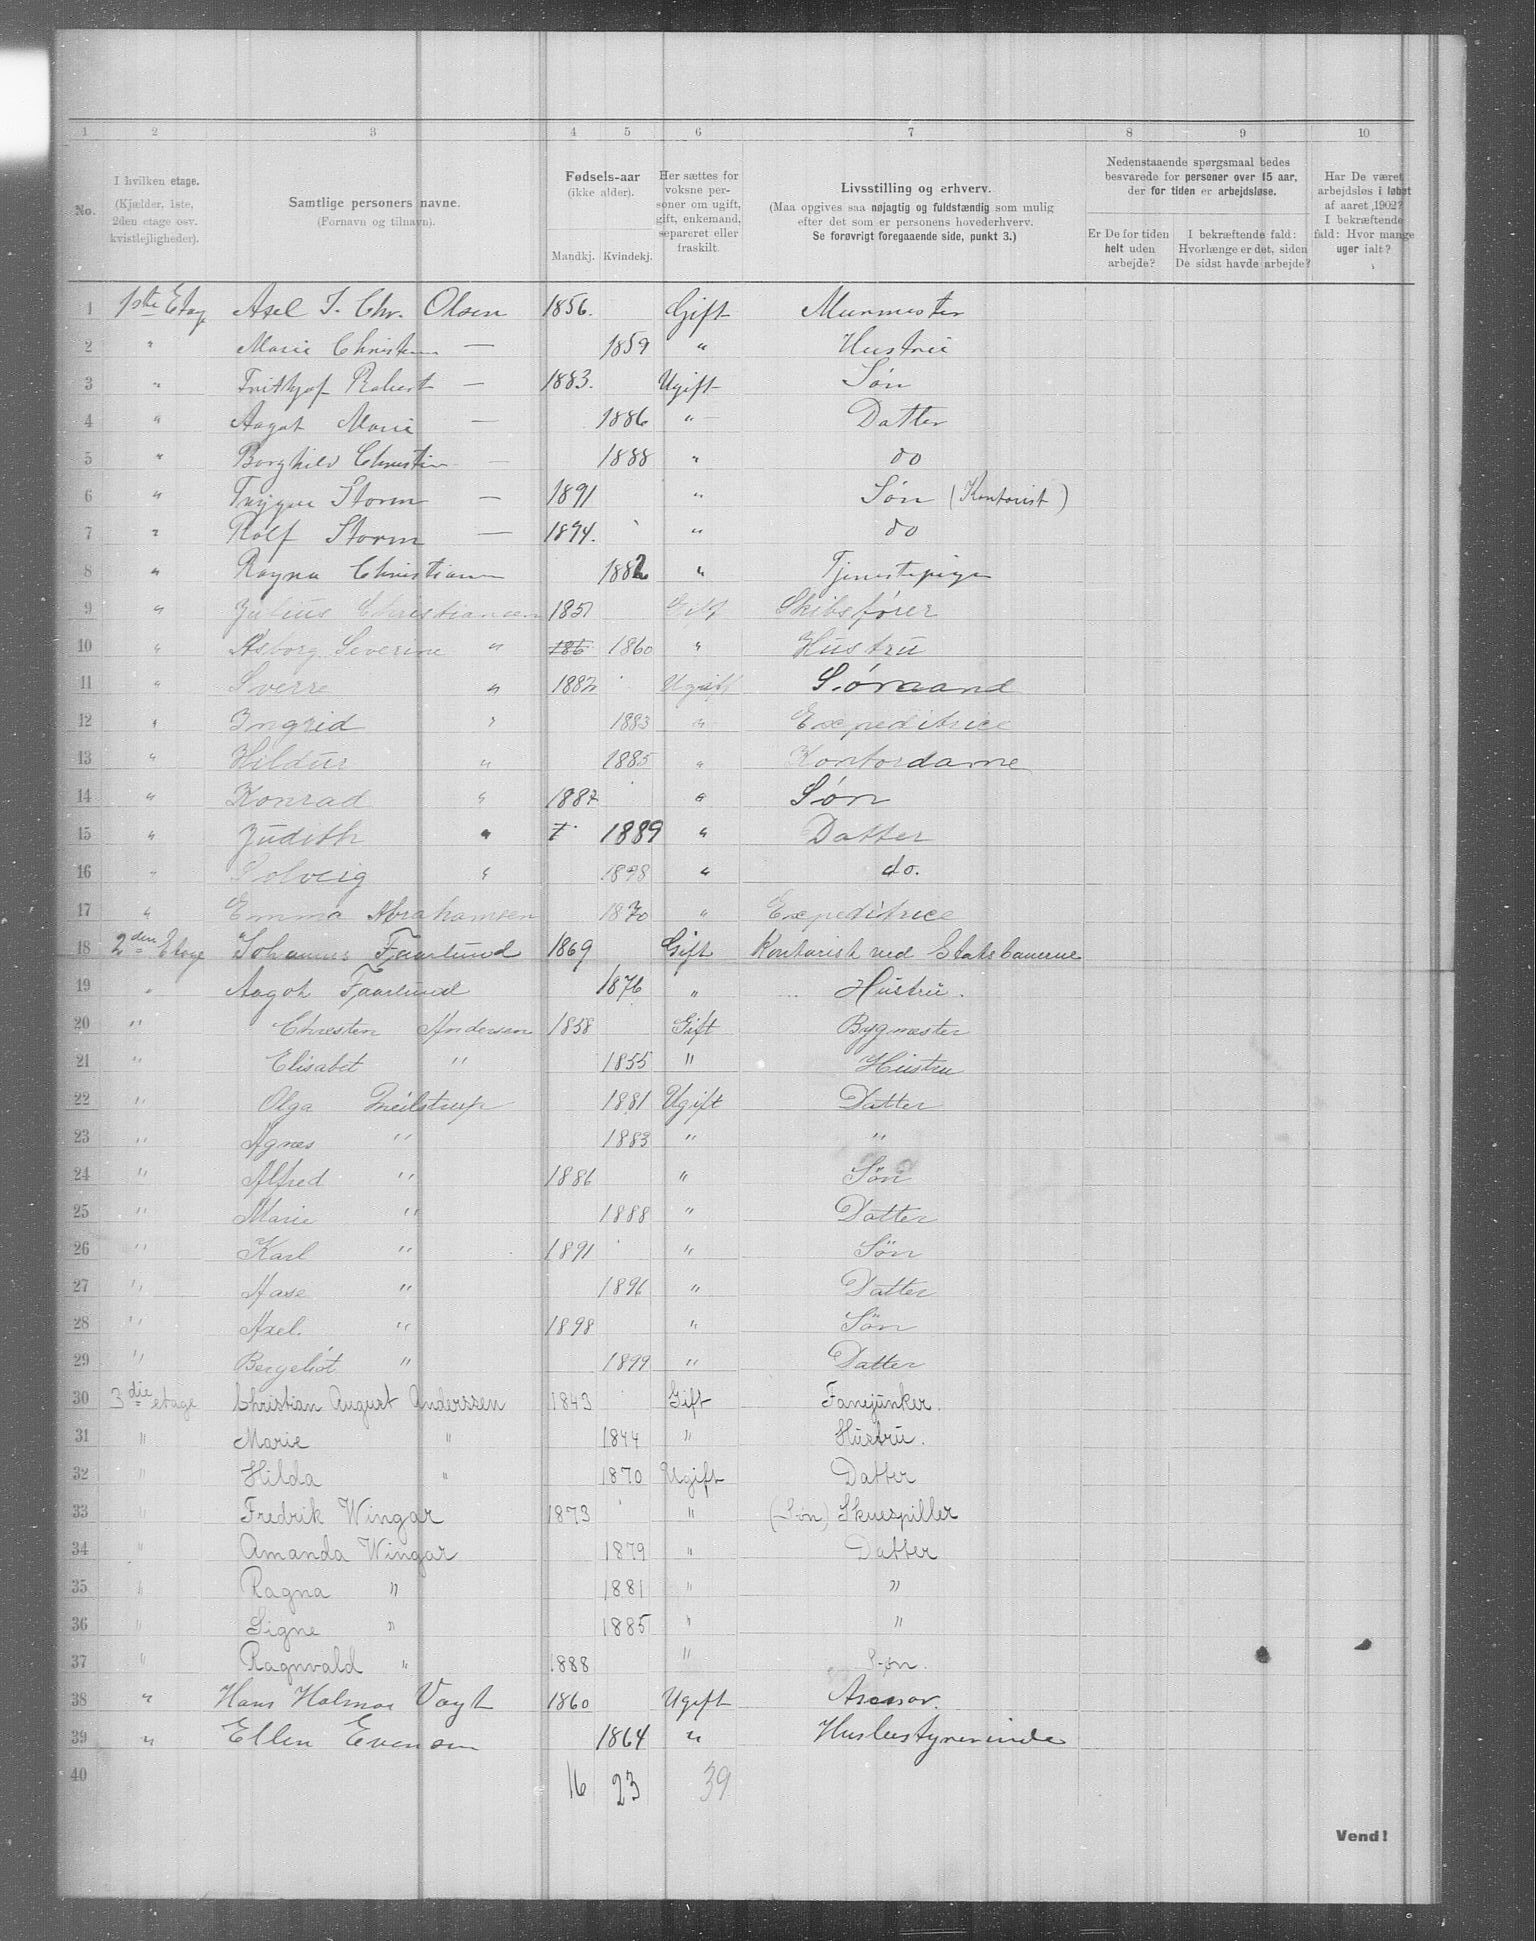 1 2 3 4 5 6 7 8 9 10
No.
I hvilken etage. (Kjælder, 1ste, 2den etage osv. kvistlejligheder).
Samtlige personers navne. (Fornavn og tilnavn).
Fødsels-aar (ikke alder). Mandkj. Kvindekj.
Her sættes for voksne personer om ugift, gift, enkemand, separeret eller fraskilt.
Livsstilling og erhverv. (Maa opgives saa nøjagtig og fuldstændig som mulig efter det som er personens hovederhverv. Se forøvrigt foregaaende side, punkt 3.)
Nedenstaaende spørgsmaal bedes besvarede for personer over 15 aar, der for tiden er arbejdsløse.
Er De for tiden helt uden arbejde?
I bekræftende fald: Hvorlænge er det, siden De sidst havde arbejde?
Har De været arbejdsløs i løbet af aaret 1902? I bekræftende fald: Hvor mange uger ialt?
1 1ste Etag Axel J. Chr. Olsen 1856. Gift Murmester
2 " Marie Christen — 1859 " Hustru
3 " Frithjof Robert — 1883. Ugift Søn
4 " Aagot Marie — 1886 " Datter
5 " Borghild Christin — 1888 " do
6 " Trygve Storm — 1891 " Søn (Kontorist)
7 " Rolf Storm — 1894. " do
8 " Ragna Christiansen 1882 " Tjenestepige
9 " Julius Christiansen 1851 Gift Skibsfører
10 " Asborg Severine " 186 1860 " Hustru
11 " Sverre " 1882 Ugift Sømand
12 " Ingrid " 1883 " Expeditrice
13 " Hildur " 1885 " Kontordame
14 " Konrad " 1887 " Søn
15 " Judith " 1889 " Datter
16 " Solveig " 1898 " do.
17 " Emma Abrahamsen 1870 " Expeditrice
18 2den Etage Johannes Fjaarlund 1869 Gift Kontorist ved Statsbanerne
19 " Aagot Fjaarlund 1876 " Hustru.
20 " Christen Andersen 1858 Gift Bygmester
21 " Elisabet " 1855 " Hustru
22 " Olga Treilstrup 1881 Ugift Datter
23 " Agnes " 1883 " "
24 " Alfred " 1886 " Søn
25 " Marie " 1888 " Datter
26 " Karl " 1891 " Søn
27 " Aase " 1896 " Datter
28 " Axel. " 1898 " Søn
29 " Bergeliot " 1899 " Datter
30 3die etage Christian August Anderssen 1843 Gift Fanejunker.
31 " Marie " 1844 " Hustru.
32 " Hilda " 1870 Ugift Datter
33 " Fredrik Wingar 1873 " (Søn) Skuespiller
34 " Amanda Wingar 1879 " Datter
35 " Ragna " 1881 " "
36 " Signe " 1885 " "
37 " Ragnvald " 1888 " Søn.
38 " Hans Halmar Vogt 1860 Ugift Assessor
39 " Ellen Evensen 1864 " Husbestyrerinde
40 16 23 39
Vend!